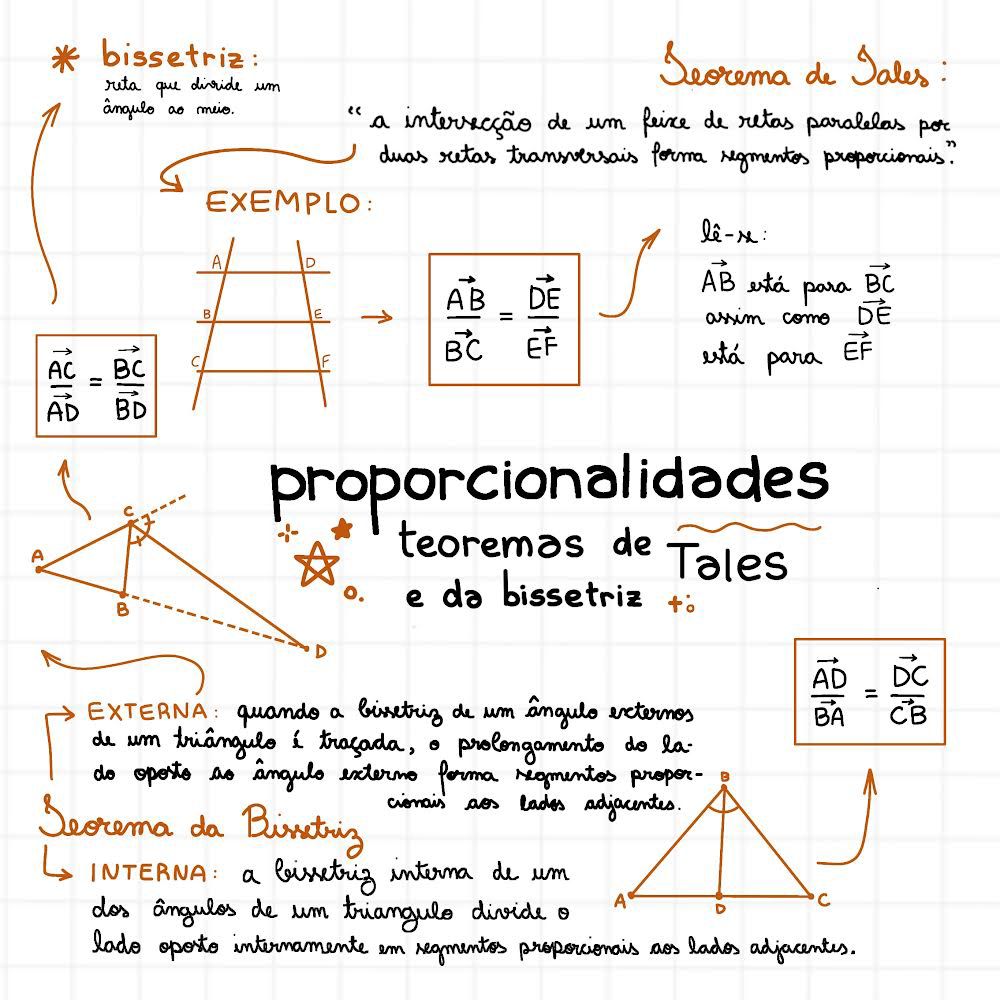 * bissetriz:
reta que divide um
ângulo ao meio.
Teorema de Tales:
“a intersecção de um feixe de retas paralelas por
duas retas transversais forma segmentos proporcionais.”
EXEMPLO:
A D
B E
C F
AB = DE
BC EF
lê-se:
AB está para BC
assim como DE
está para EF
AC = BC
AD BD
proporcionalidades
teoremas de Tales
e da bissetriz
C
A
B
D
AD = DC
BA CB
EXTERNA: quando a bissetriz de um ângulo externos
de um triângulo é traçada, o prolongamento do la-
do oposto ao ângulo externo forma segmentos propor-
cionais aos lados adjacentes.
Teorema da Bissetriz
INTERNA: a bissetriz interna de um
dos ângulos de um triangulo divide o
lado oposto internamente em segmentos proporcionais aos lados adjacentes.
B
A D C